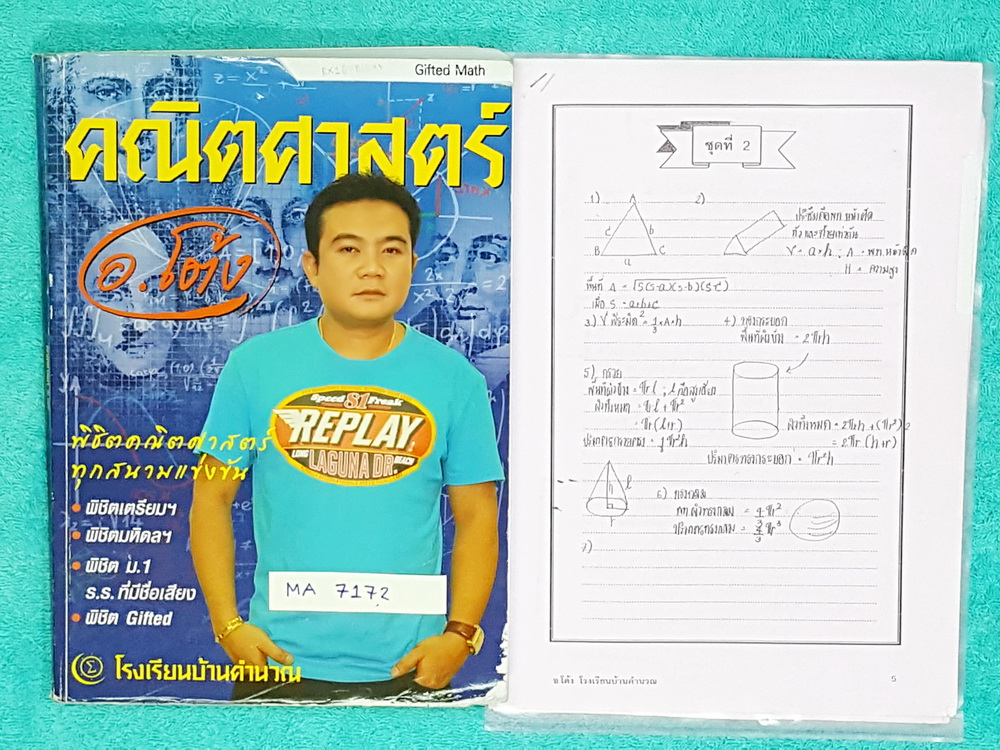 Gifted Math
คณิตศาสตร์
อ.โต้ง
พิชิตคณิตศาสตร์
ทุกสนามแข่งขัน
• พิชิตเตรียมฯ
• พิชิตมหิดลฯ
• พิชิต ม.1
ร.ร. ที่มีชื่อเสียง
• พิชิต Gifted
Speed S1 Freak
REPLAY
LONG LAGUNA DR. BEACH
MA 7172
โรงเรียนบ้านคำนวณ
ชุดที่ 2
1) A
c b
B C
a
2)
ปริซึมคือพท. หน้าตัด
V = a×h ; A = พท. หน้าตัด
H = ความสูง
พื้นที่ Δ = √S(s-a)(s-b)(s-c)
เมื่อ S = a+b+c
2
3) V พีระมิด = 1/3 × A×h
4) ทรงกระบอก
พื้นที่ผิวข้าง = 2πrh
5) กรวย
พื้นที่ผิวข้าง = πrl ; l คือสูงเอียง
ผิวทั้งหมด = πrl + πr²
= πr(l+r)
ปริมาตรกรวย = 1/3 πr²h
ผิวทั้งหมด = 2πrh + (πr²)2
= 2πr (h+r)
ปริมาตรทรงกระบอก = πr²h
l
h
r
6) ทรงกลม
พท.ผิวทรงกลม = 4πr²
ปริมาตรทรงกลม = 4/3 πr³
7)
อ.โต้ง โรงเรียนบ้านคำนวณ
5